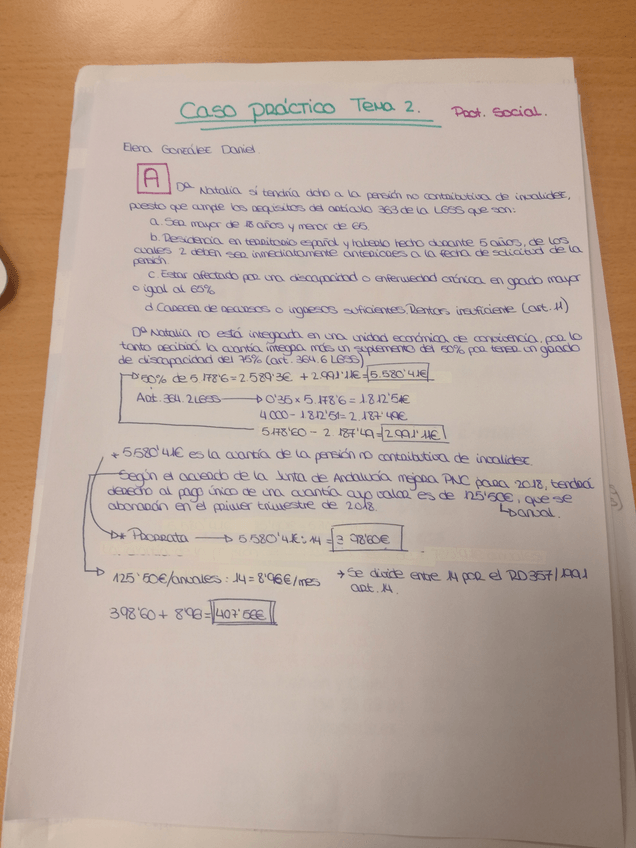 Caso práctico Tema 2. Prot. Social.
Elena González Daniel.
A
Dª Natalia sí tendría dcho a la pensión no contributiva de invalidez,
puesto que cumple los requisitos del artículo 363 de la LGSS que son:
a. Ser mayor de 18 años y menor de 65.
b. Residencia en territorio español y haberlo hecho durante 5 años, de los
cuales 2 deben ser inmediatamente anteriores a la fecha de solicitud de la
pensión.
c. Estar afectado por una discapacidad o enfermedad crónica en grado mayor
o igual al 65%
d. Carecer de recursos o ingresos suficientes. Rentas insuficiente (art. 11)
Dª Natalia no está integrada en una unidad económica de convivencia, por lo
tanto recibirá la cuantía íntegra más un suplemento del 50% por tener un grado
de discapacidad del 75% (art. 364.6 LGSS)
50% de 5.178'6 = 2.589'3€ + 2.991'11€ = 5.580'41€
Art. 364.2 LGSS → 0'35 x 5.178'6 = 1.812'51€
4.000 - 1.812'51 = 2.187'49€
5.178'60 - 2.187'49 = 2.991'11€
* 5.580'41€ es la cuantía de la pensión no contributiva de invalidez.
Según el acuerdo de la Junta de Andalucía mejora PNC para 2018, tendrá
derecho al pago único de una cuantía cuyo valor es de 125'50€, que se
abonarán en el primer trimestre de 2018. ↳ anual.
* Prorrata → 5.580'41€ : 14 = 398'60€
125'50€/anuales : 14 = 8'96€/mes → Se divide entre 14 por el RD 357/1991
art. 14.
398'60 + 8'96 = 407'56€